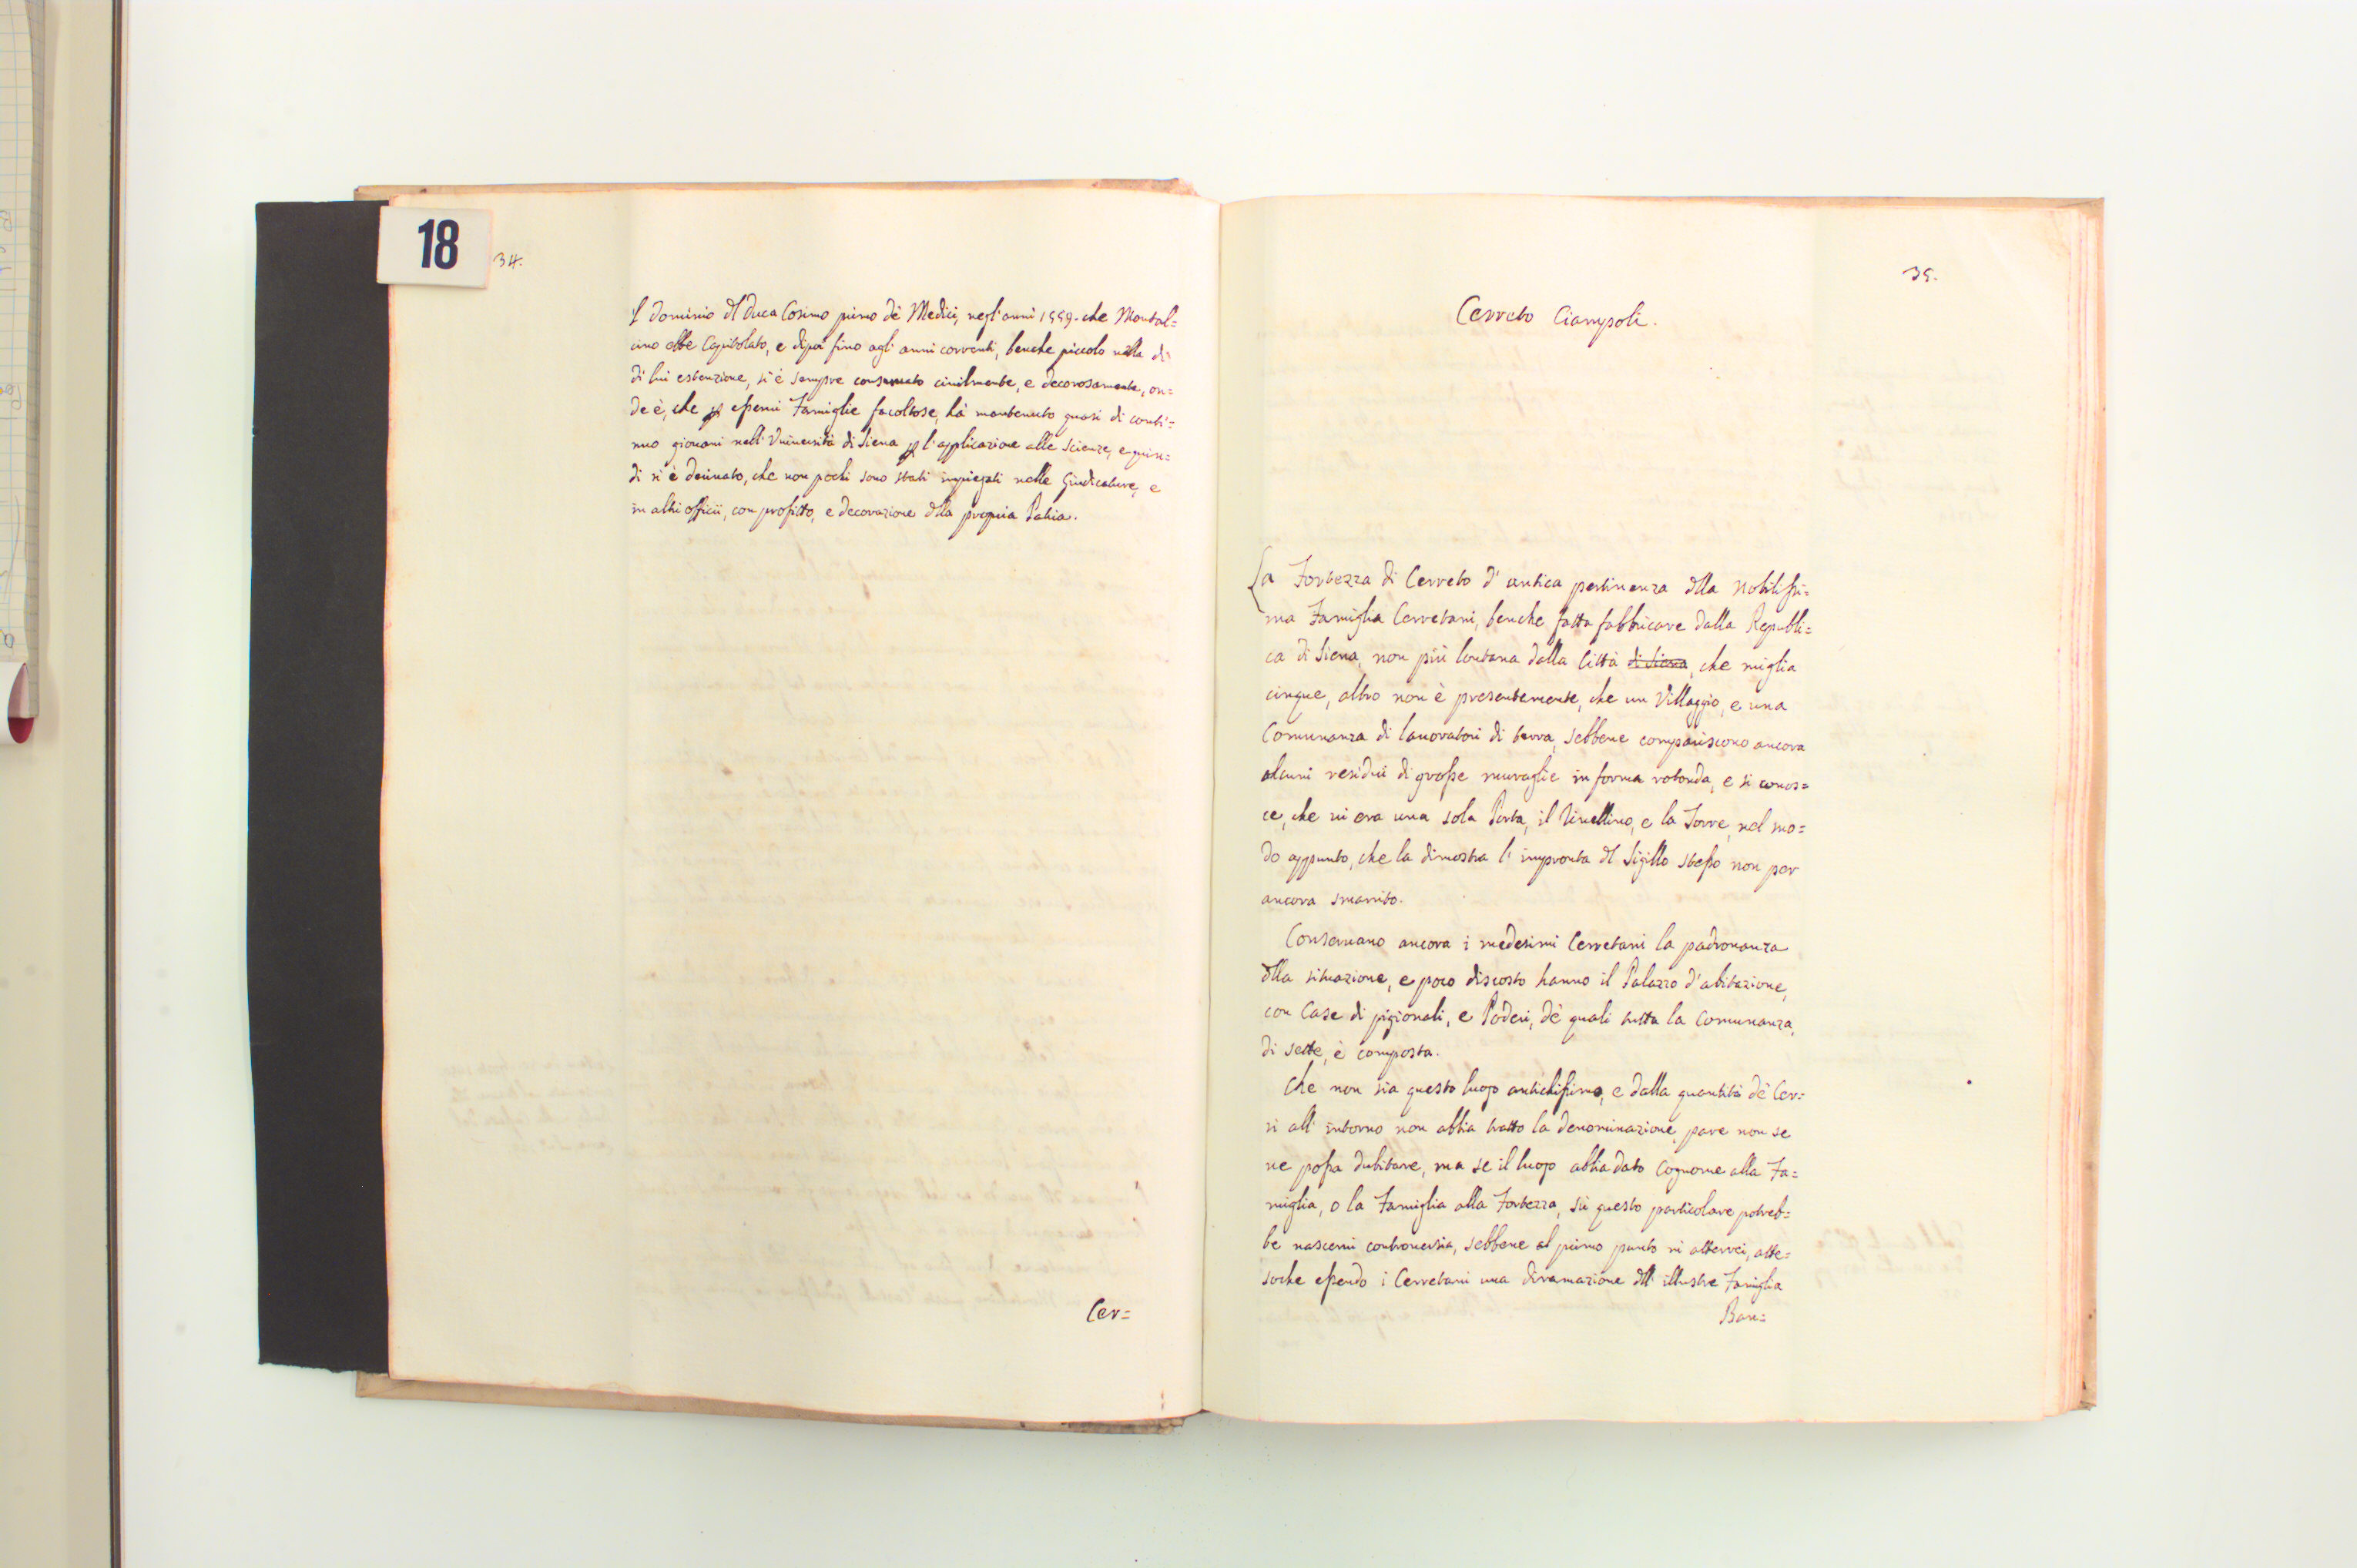 18
34.
'l dominio dl Duca Cosimo primo dè Medici, negl'anni 1559. che Montal=
cino ebbe Capitolato, e dipoi fino agl'anni correnti, benche piccolo nella di
di lui estenzione, si è sempre conservato civilmente, e decorosamente, on=
de è, che p esservi Famiglie facoltose, hà mantenuto quasi di conti=
nuo giovani nell'Università di Siena p l'applicazione alle Scienze, e quin=
di si è derivato, che non pochi sono stati impiegati nelle Giudicature, e
in altri officii, con profitto, e decorazione dlla propria Patria.
Cer=
35.
Cerreto Ciampoli.
La Fortezza di Cerreto d'antica pertinenza dlla Nobilissi=
ma Famiglia Cerretani, benche fatta fabbricare dalla Republi=
ca di Siena, non più lontana dalla Città di Siena, che miglia
cinque, altro non è presentemente, che un Villaggio, e una
Comunanza di lavoratori di terra, sebbene compariscono ancora
alcuni residui di grosse muraglie in forma rotonda, e si conos=
ce, che vi era una sola Porta, il Rivellino, e la Torre, nel mo=
do appunto, che la dimostra l'impronta dl Sigillo stesso non per
ancora smarrito.
Conservano ancora i medesimi Cerretani la padronanza
dlla situazione, e poco discosto hanno il Palazzo d'abitazione,
con Case di pigionali, e Poderi, dè quali tutta la Comunanza,
di sette, è composta.
Che non sia questo luogo antichissimo, e dalla quantità dè Cer=
ri all'intorno non abbia tratto la denominazione, pare non se
ne possa dubitare, ma se il luogo abbia dato Cognome alla Fa=
miglia, o la Famiglia alla Fortezza, sù questo particolare potreb=
be nascervi controversia, sebbene al primo punto mi atterrei, atte=
soche essendo i Cerretani una diramazione dll'illustre Famiglia
Ban=